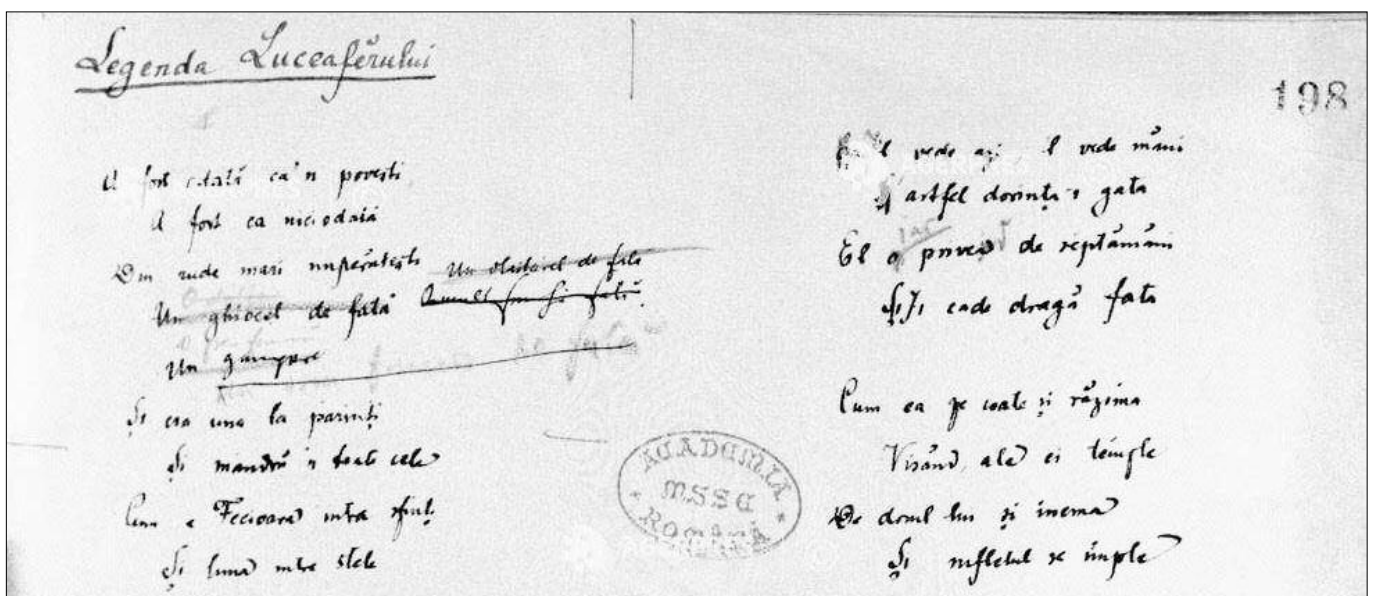 Legenda Luceafĕrului
198
A fost odată ca'n povești
A fost ca niciodată
Din rude mari împĕrătești
Un vlăstărel de fată
Un ghiocel de fată
Un
Și era una la parinți
Și mandră 'n toate cele
Cum e Fecioara intre sfinți
Și luna intre stele
Ea 'l vede azi, 'l vede mâni
Și astfel dorința-i gata
El o de sĕptămâni
Și 'i cade dragă fata
Cum ea pe coate 'și răzima
Visând ale ei têmple
De dorul lui și inema
Și sufletul se împle
ACADEMIA
MSSE
ROMÂNĂ